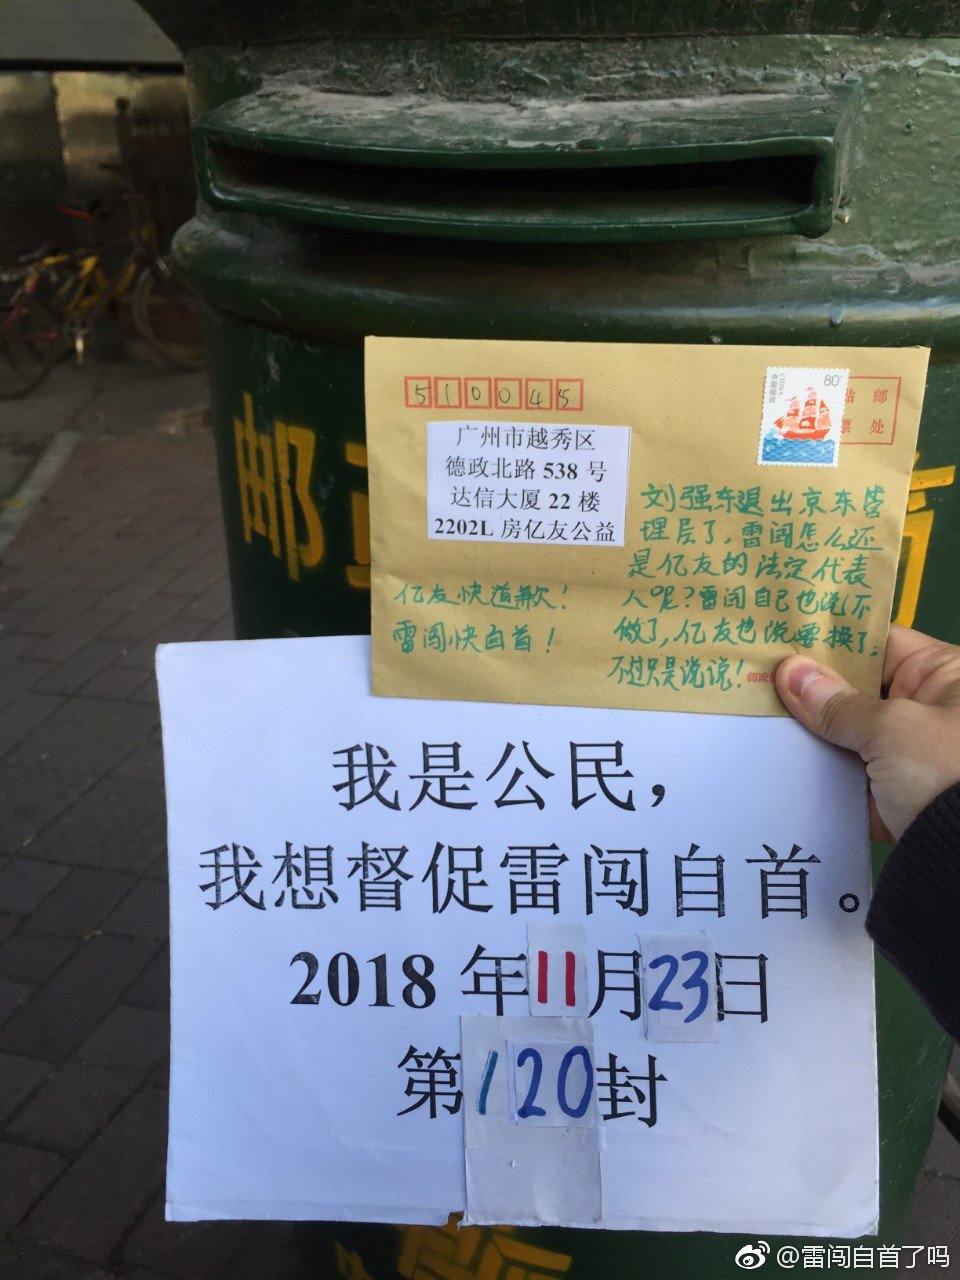 510045
中国邮政
CHINA
80
贴 邮
票 处
广州市越秀区
德政北路 538 号
达信大厦 22 楼
2202L 房亿友公益
刘强东退出京东管
理层了,雷闯怎么还
是亿友的法定代表
人呢?雷闯自己也说不
做了,亿友也说要换了,
不过只是说说!
亿友快道歉!
雷闯快自首!
邮政
邮
我是公民,
我想督促雷闯自首。
2018 年 11 月 23 日
第 120 封
@雷闯自首了吗